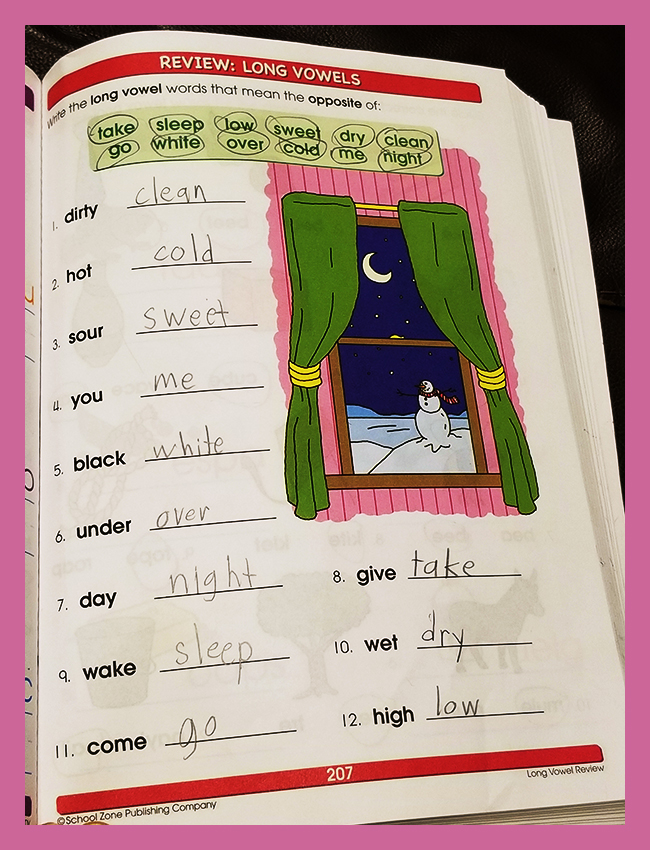 REVIEW: LONG VOWELS
Write the long vowel words that mean the opposite of:
take sleep low sweet dry clean
go white over cold me night
1. dirty clean
2. hot cold
3. sour sweet
4. you me
5. black white
6. under over
7. day night
8. give take
9. wake sleep
10. wet dry
11. come go
12. high low
207
Long Vowel Review
©School Zone Publishing Company